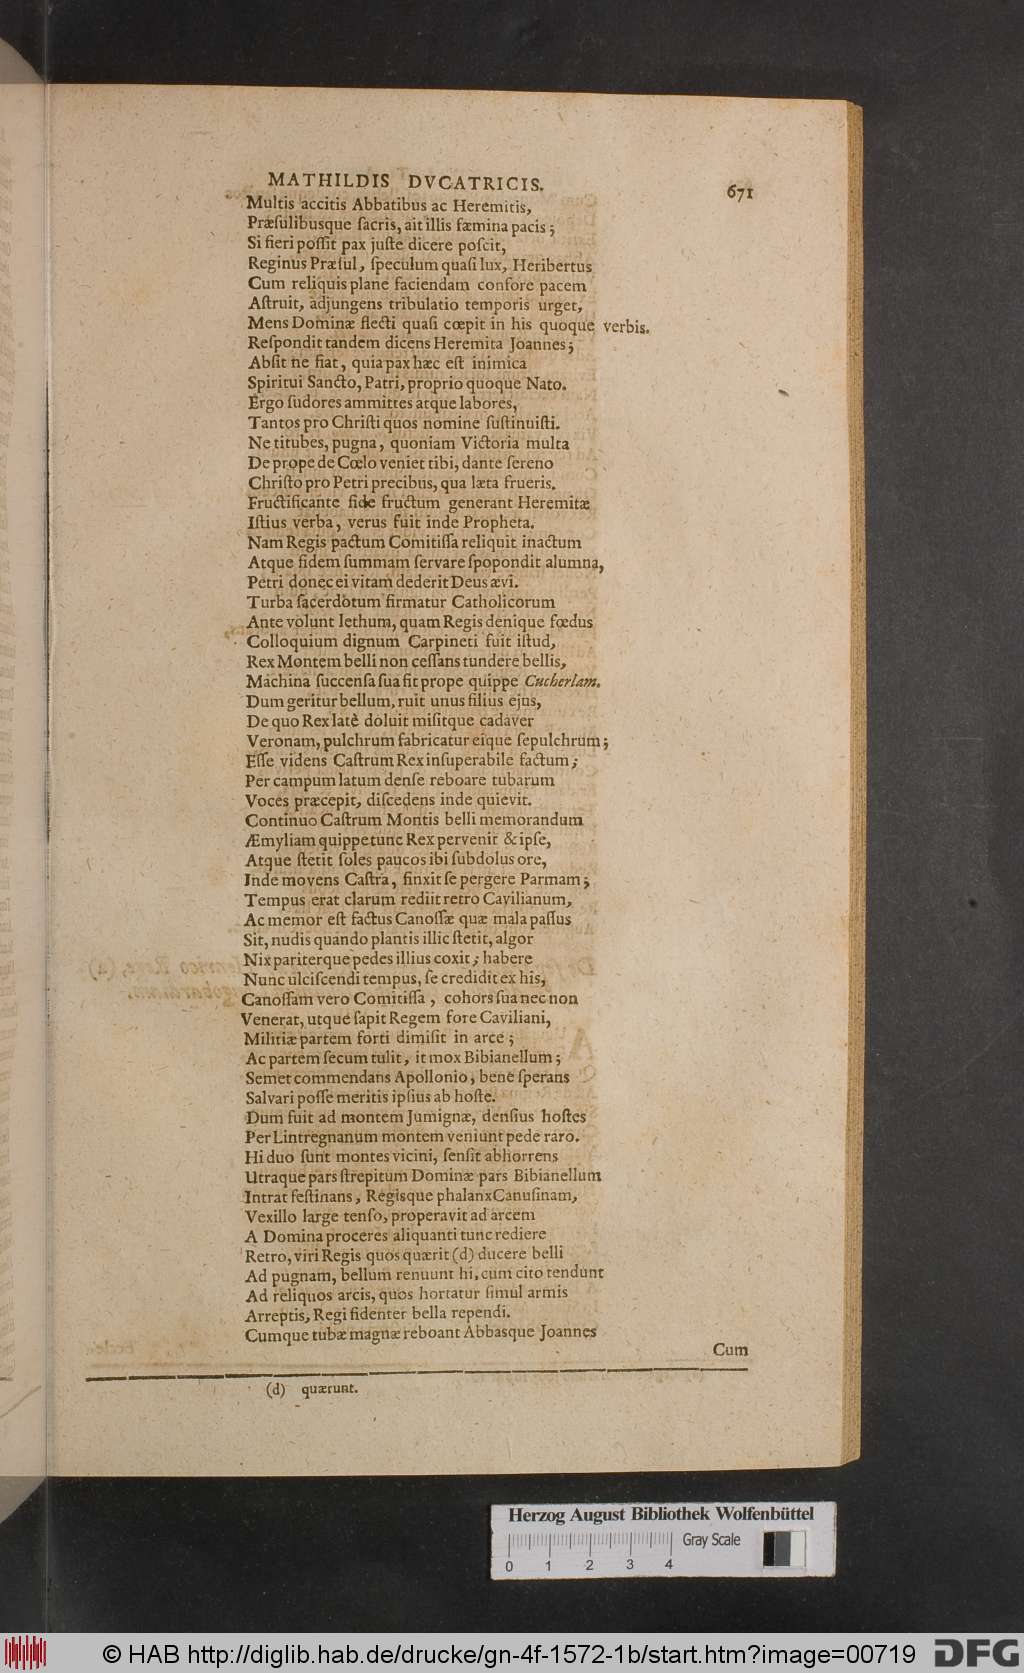 MATHILDIS DVCATRICIS. 671
Multis accitis Abbatibus ac Heremitis,
Præſulibusque ſacris, ait illis fæmina pacis;
Si fieri poſſit pax juſte dicere poſcit,
Reginus Præſul, ſpeculum quaſi lux, Heribertus
Cum reliquis plane faciendam conſore pacem
Aſtruit, adjungens tribulatio temporis urget,
Mens Dominæ flecti quaſi cœpit in his quoque verbis.
Reſpondit tandem dicens Heremita Joannes;
Abſit ne fiat, quia pax hæc eſt inimica
Spiritui Sancto, Patri, proprio quoque Nato.
Ergo ſudores ammittes atque labores,
Tantos pro Chriſti quos nomine ſuſtinuiſti.
Ne titubes, pugna, quoniam Victoria multa
De prope de Cœlo veniet tibi, dante ſereno
Chriſto pro Petri precibus, qua læta frueris.
Fructificante fide fructum generant Heremitæ
Iſtius verba, verus fuit inde Propheta.
Nam Regis pactum Comitiſſa reliquit inactum
Atque fidem ſummam ſervare ſpopondit alumna,
Petri donec ei vitam dederit Deus ævi.
Turba ſacerdotum firmatur Catholicorum
Ante volunt lethum, quam Regis denique fœdus
Colloquium dignum Carpineti fuit iſtud,
Rex Montem belli non ceſſans tundere bellis,
Machina ſuccenſa ſua fit prope quippe Cucherlam.
Dum geritur bellum, ruit unus filius ejus,
De quo Rex latè doluit miſitque cadaver
Veronam, pulchrum fabricatur eique ſepulchrum;
Eſſe videns Caſtrum Rex inſuperabile factum;
Per campum latum denſe reboare tubarum
Voces præcepit, diſcedens inde quievit.
Continuo Caſtrum Montis belli memorandum
Æmyliam quippe tunc Rex pervenit & ipſe,
Atque ſtetit ſoles paucos ibi ſubdolus ore,
Inde movens Caſtra, finxit ſe pergere Parmam;
Tempus erat clarum rediit retro Cavilianum,
Ac memor eſt factus Canoſſæ quæ mala paſſus
Sit, nudis quando plantis illic ſtetit, algor
Nix pariterque pedes illius coxit; habere
Nunc ulciſcendi tempus, ſe credidit ex his,
Canoſſam vero Comitiſſa, cohors ſua nec non
Venerat, utque ſapit Regem fore Caviliani,
Militiæ partem forti dimiſit in arce;
Ac partem ſecum tulit, it mox Bibianellum;
Semet commendans Apollonio, bene ſperans
Salvari poſſe meritis ipſius ab hoſte.
Dum fuit ad montem Jumignæ, denſius hoſtes
Per Lintregnanum montem veniunt pede raro.
Hi duo ſunt montes vicini, ſenſit abhorrens
Utraque pars ſtrepitum Dominæ pars Bibianellum
Intrat feſtinans, Regisque phalanx Canuſinam,
Vexillo large tenſo, properavit ad arcem
A Domina proceres aliquanti tunc rediere
Retro, viri Regis quos quærit (d) ducere belli
Ad pugnam, bellum renuunt hi, cum cito tendunt
Ad reliquos arcis, quos hortatur ſimul armis
Arreptis, Regi fidenter bella rependi.
Cumque tubæ magnæ reboant Abbasque Joannes
Cum
(d) quærunt.
Herzog August Bibliothek Wolfenbüttel
Gray Scale
0 1 2 3 4
© HAB http://diglib.hab.de/drucke/gn-4f-1572-1b/start.htm?image=00719 DFG